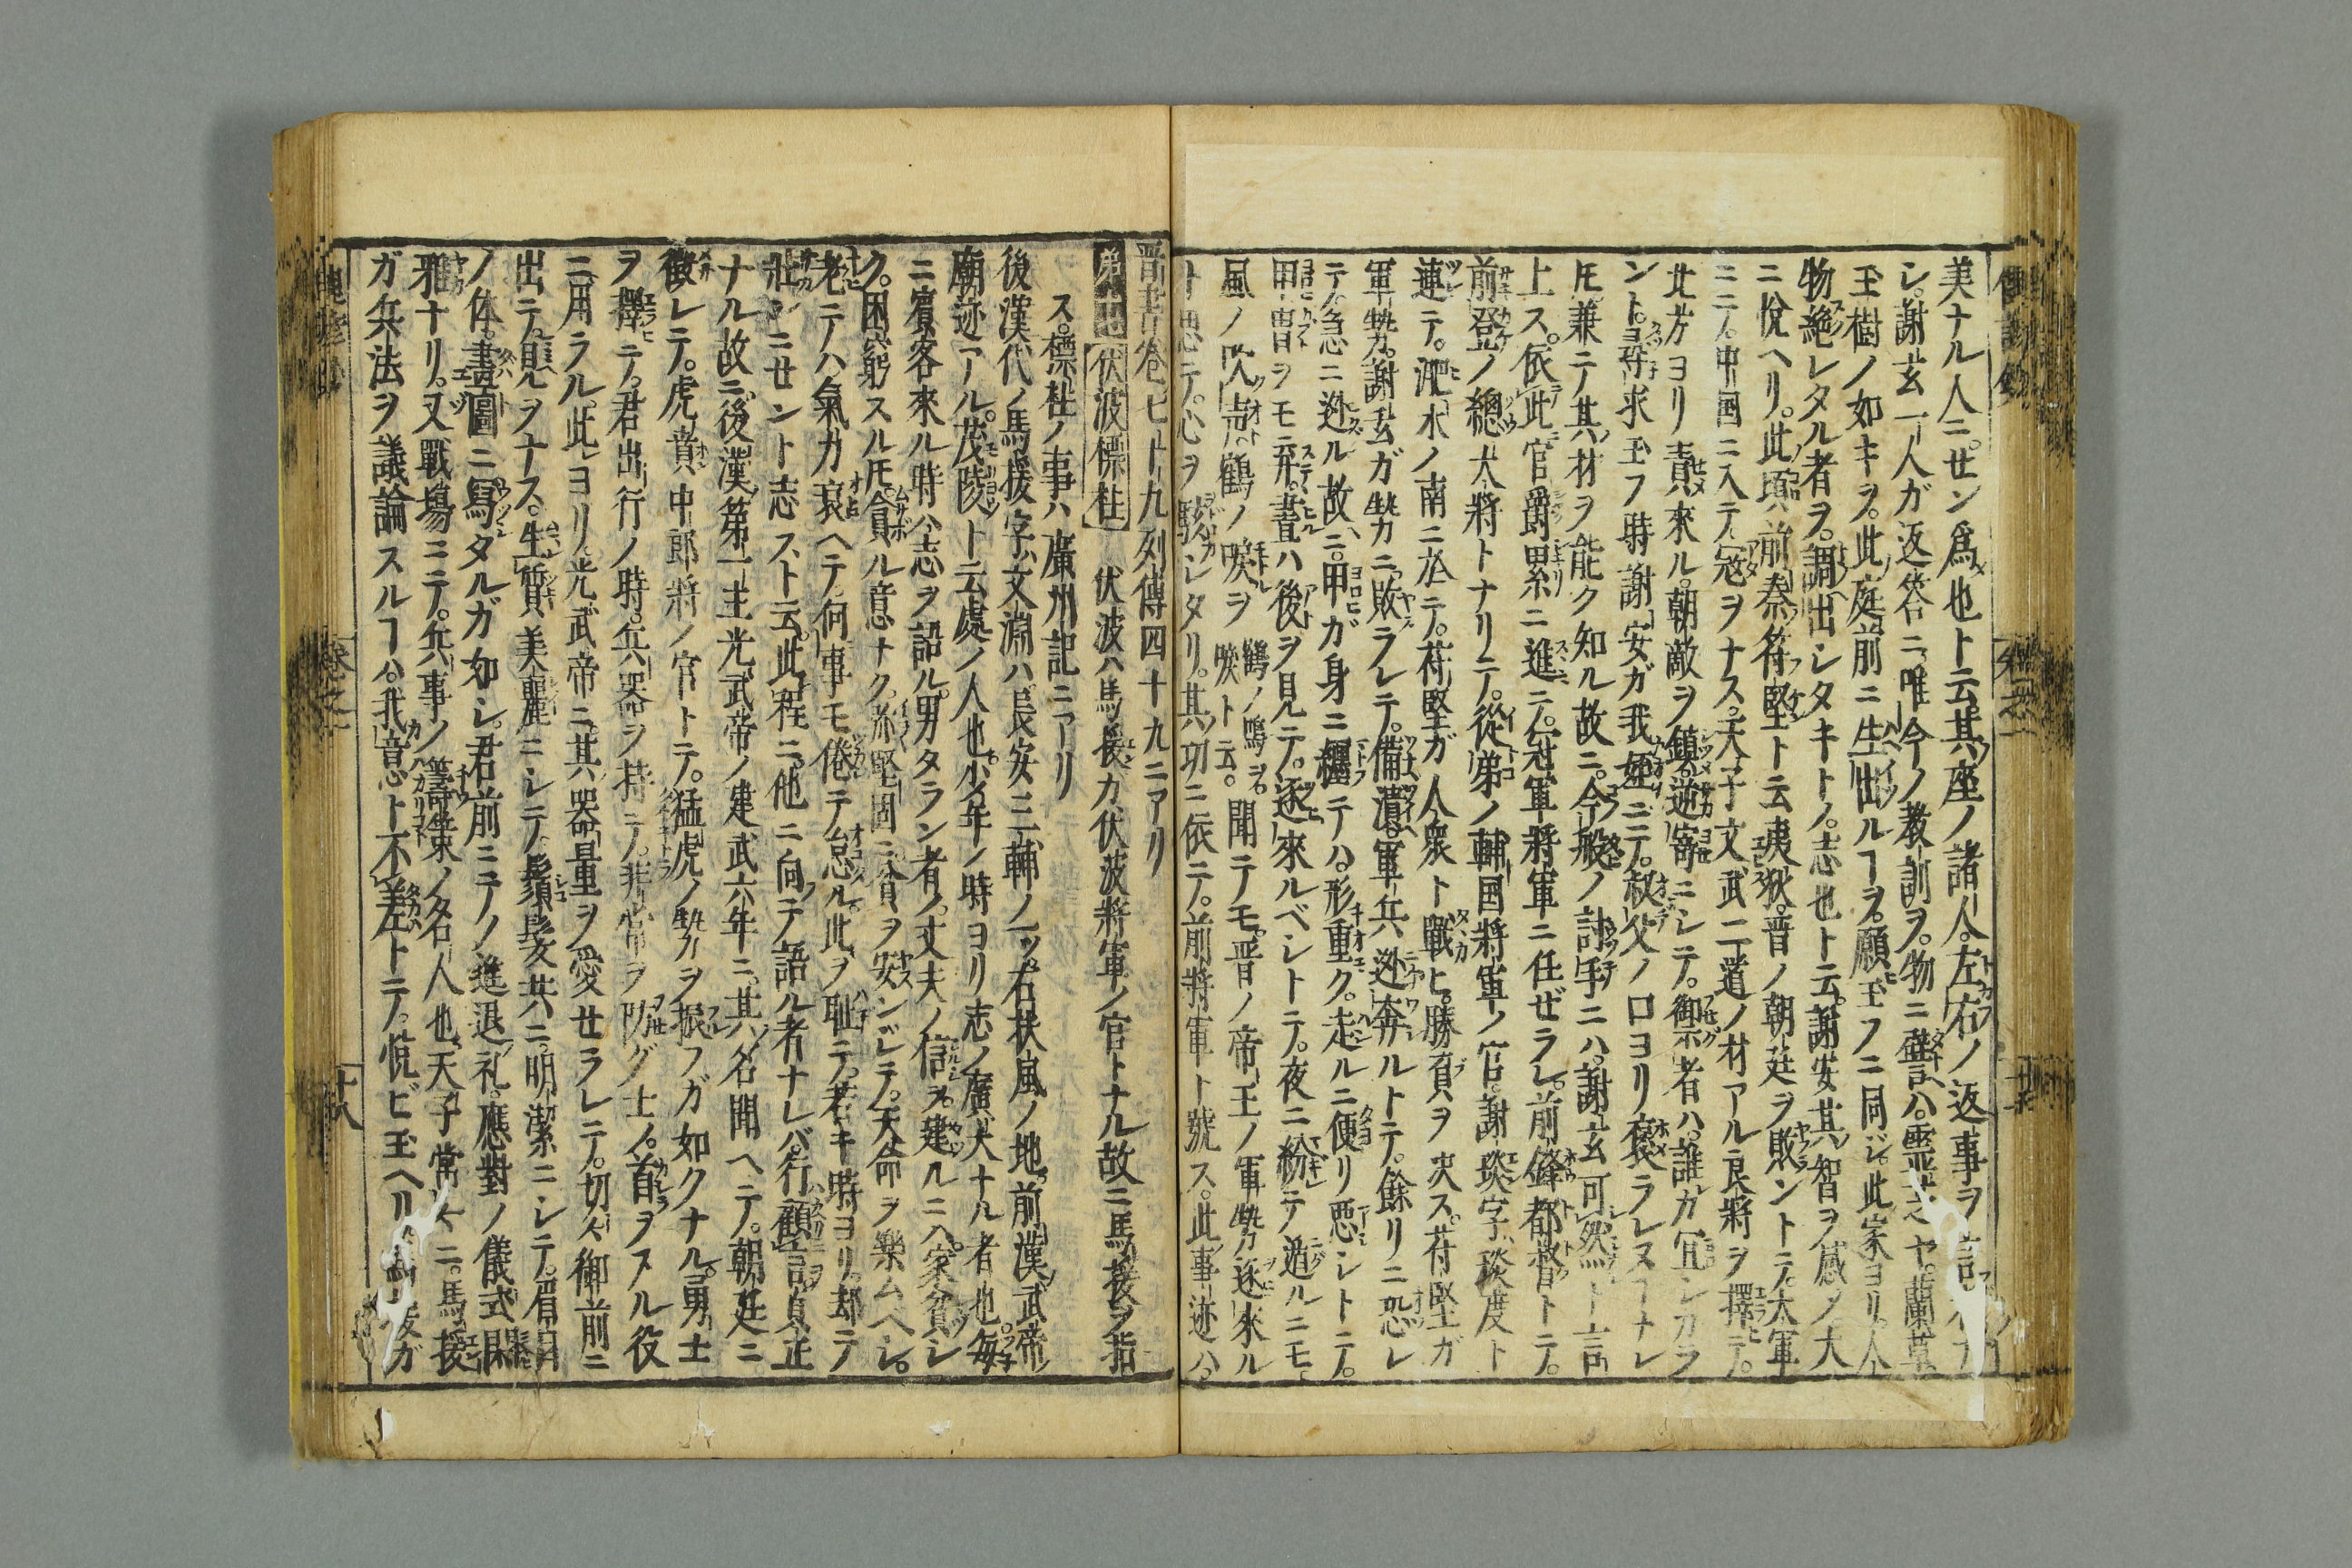 美ナル人ニセン為也ト云其座ノ諸人左右ノ返事ヲ
シ謝玄一人ガ返答ニ唯今ノ教訓ヲ物ニ譬ハ霊芝ヤ蘭草
玉樹ノ如キヲ此庭前ニ生出ルヿヲ願玉フニ同ジ此家ヨリ人
物絶レタル者ヲ調出シタキトノ志也ト云謝安其智ヲ感ノ大
ニ悦ヘリ此頃前秦符堅ト云夷狄晋ノ朝廷ヲ敗ントテ大軍
ニテ中国ニ入テ冦ヲナス天子文武二道ノ材アル良将ヲ擇テ
北方ヨリ責来ル朝敵ヲ鎮逆寄ニシテ御者ハ誰カ冝シカラ
ント尋求玉フ時謝安ガ我姪ニテ叔父ノ口ヨリ褒ラレヌヿナレ
𪜈兼テ其材ヲ能ク知ル故ニ今般ノ討手ニハ謝玄可然ト言
上ス依此官爵累ニ進ニテ冠軍将軍ニ任ゼラレ前鋒都督トテ
前登ノ總大将トナリテ從弟ノ輔国将軍ノ官謝琰字瑗度ト
連テ淝水ノ南ニ於テ苻堅ガ人衆ト戰ヒ勝負ヲ决ス苻堅ガ
軍㔟謝玄ガ㔟カニ敗ラレテ備潰軍兵迯奔ルトテ餘リニ恐レ
テ急ニ迯ル故ニ甲ガ身ニ纒テハ形重ク走ルニ便リ悪シトテ
甲冑ヲモ弃晝ハ後ヲ見テ逐來ルベシトテ夜ニ紛テ遁ルニモ
風ノ吹声鶴ノ唳ヲ鶴ノ鳴ヲ唳ト云聞テモ晋ノ帝王ノ軍㔟逐來ル
ト思テ心ヲ駭シタリ其功ニ依テ前将軍ト號ス此事迹ハ
晋書卷七十九列傳四十九ニアリ
伏波標柱 伏波ハ馬援カ伏波将軍ノ官トナル故ニ馬援ヲ指
ス標柱ノ事ハ廣州記ニアリ
後漢代ノ馬援字文淵ハ長安三輔ノ一ツ右扶風ノ地前漢武帝ノ
廟迹アル茂陵ト云處ノ人也少年ノ時ヨリ志ノ廣大ナル者也毎
ニ賓客來ル時ハ志ヲ語ル男タラン者ノ丈夫ノ信ヲ建ルニハ家貧シ
ク困窮スル𪜈貪ル意ナク弥堅固ニ貧ヲ安ンジテ天命ヲ樂ムヘシ
老テハ氣カ衰ヘテ何事モ倦テ怠ル此ヲ耻テ若キ時ヨリ却テ
壯ンニセント志スト云此程ニ他ニ向テ語ル者ナレバ行顧言貞正
ナル故ニ後漢第一主光武帝ノ建武六年ニ其名聞ヘテ朝廷ニ
徴レテ虎賁中郎将ノ官トテ猛虎ノ㔟カヲ振フガ如クナル勇士
ヲ擇テ君出行ノ時兵器ヲ持テ非常ヲ防グ士ノ首ヲスル役
ニ用ラル此ヨリ光武帝ニ其器量ヲ愛セラレテ切々御前ニ
出テ見ヲナス生質美麗ニシテ鬚髪共ニ明潔ニシテ眉目
ノ体畫圖ニ寫タルガ如シ君前ニテノ進退礼應對ノ儀式閑
雅ナリ又戰塲ニテ兵事ノ籌策ノ名人也天子常々ニ馬援
ガ兵法ヲ議論スルヿハ我意ト不差トテ悦ビ玉ヘリ
十八